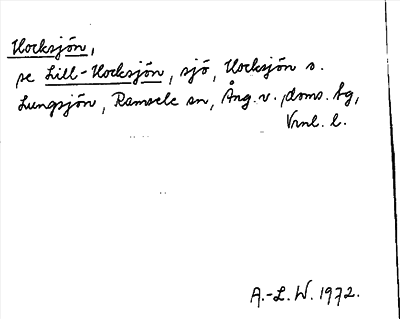 Hocksjön,
se Lill-Hocksjön, sjö, Hocksjön s.
Lungsjön, Ramsele sn, Ång. v. doms. bg,
Vrml. l.
A.-L. W. 1972.